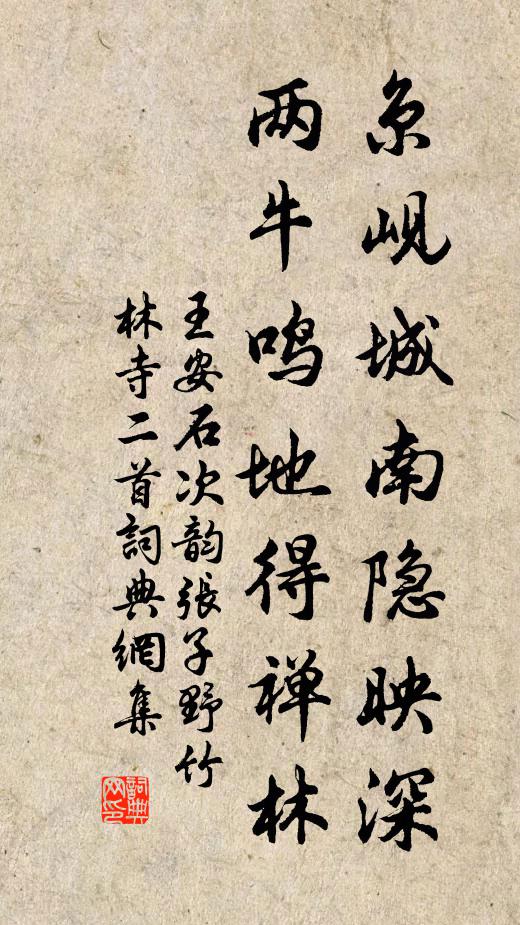 京岘城南隐映深
两牛鸣地得禅林
王安石次韵張子野竹
林寺二首詞典網集
詞典网印